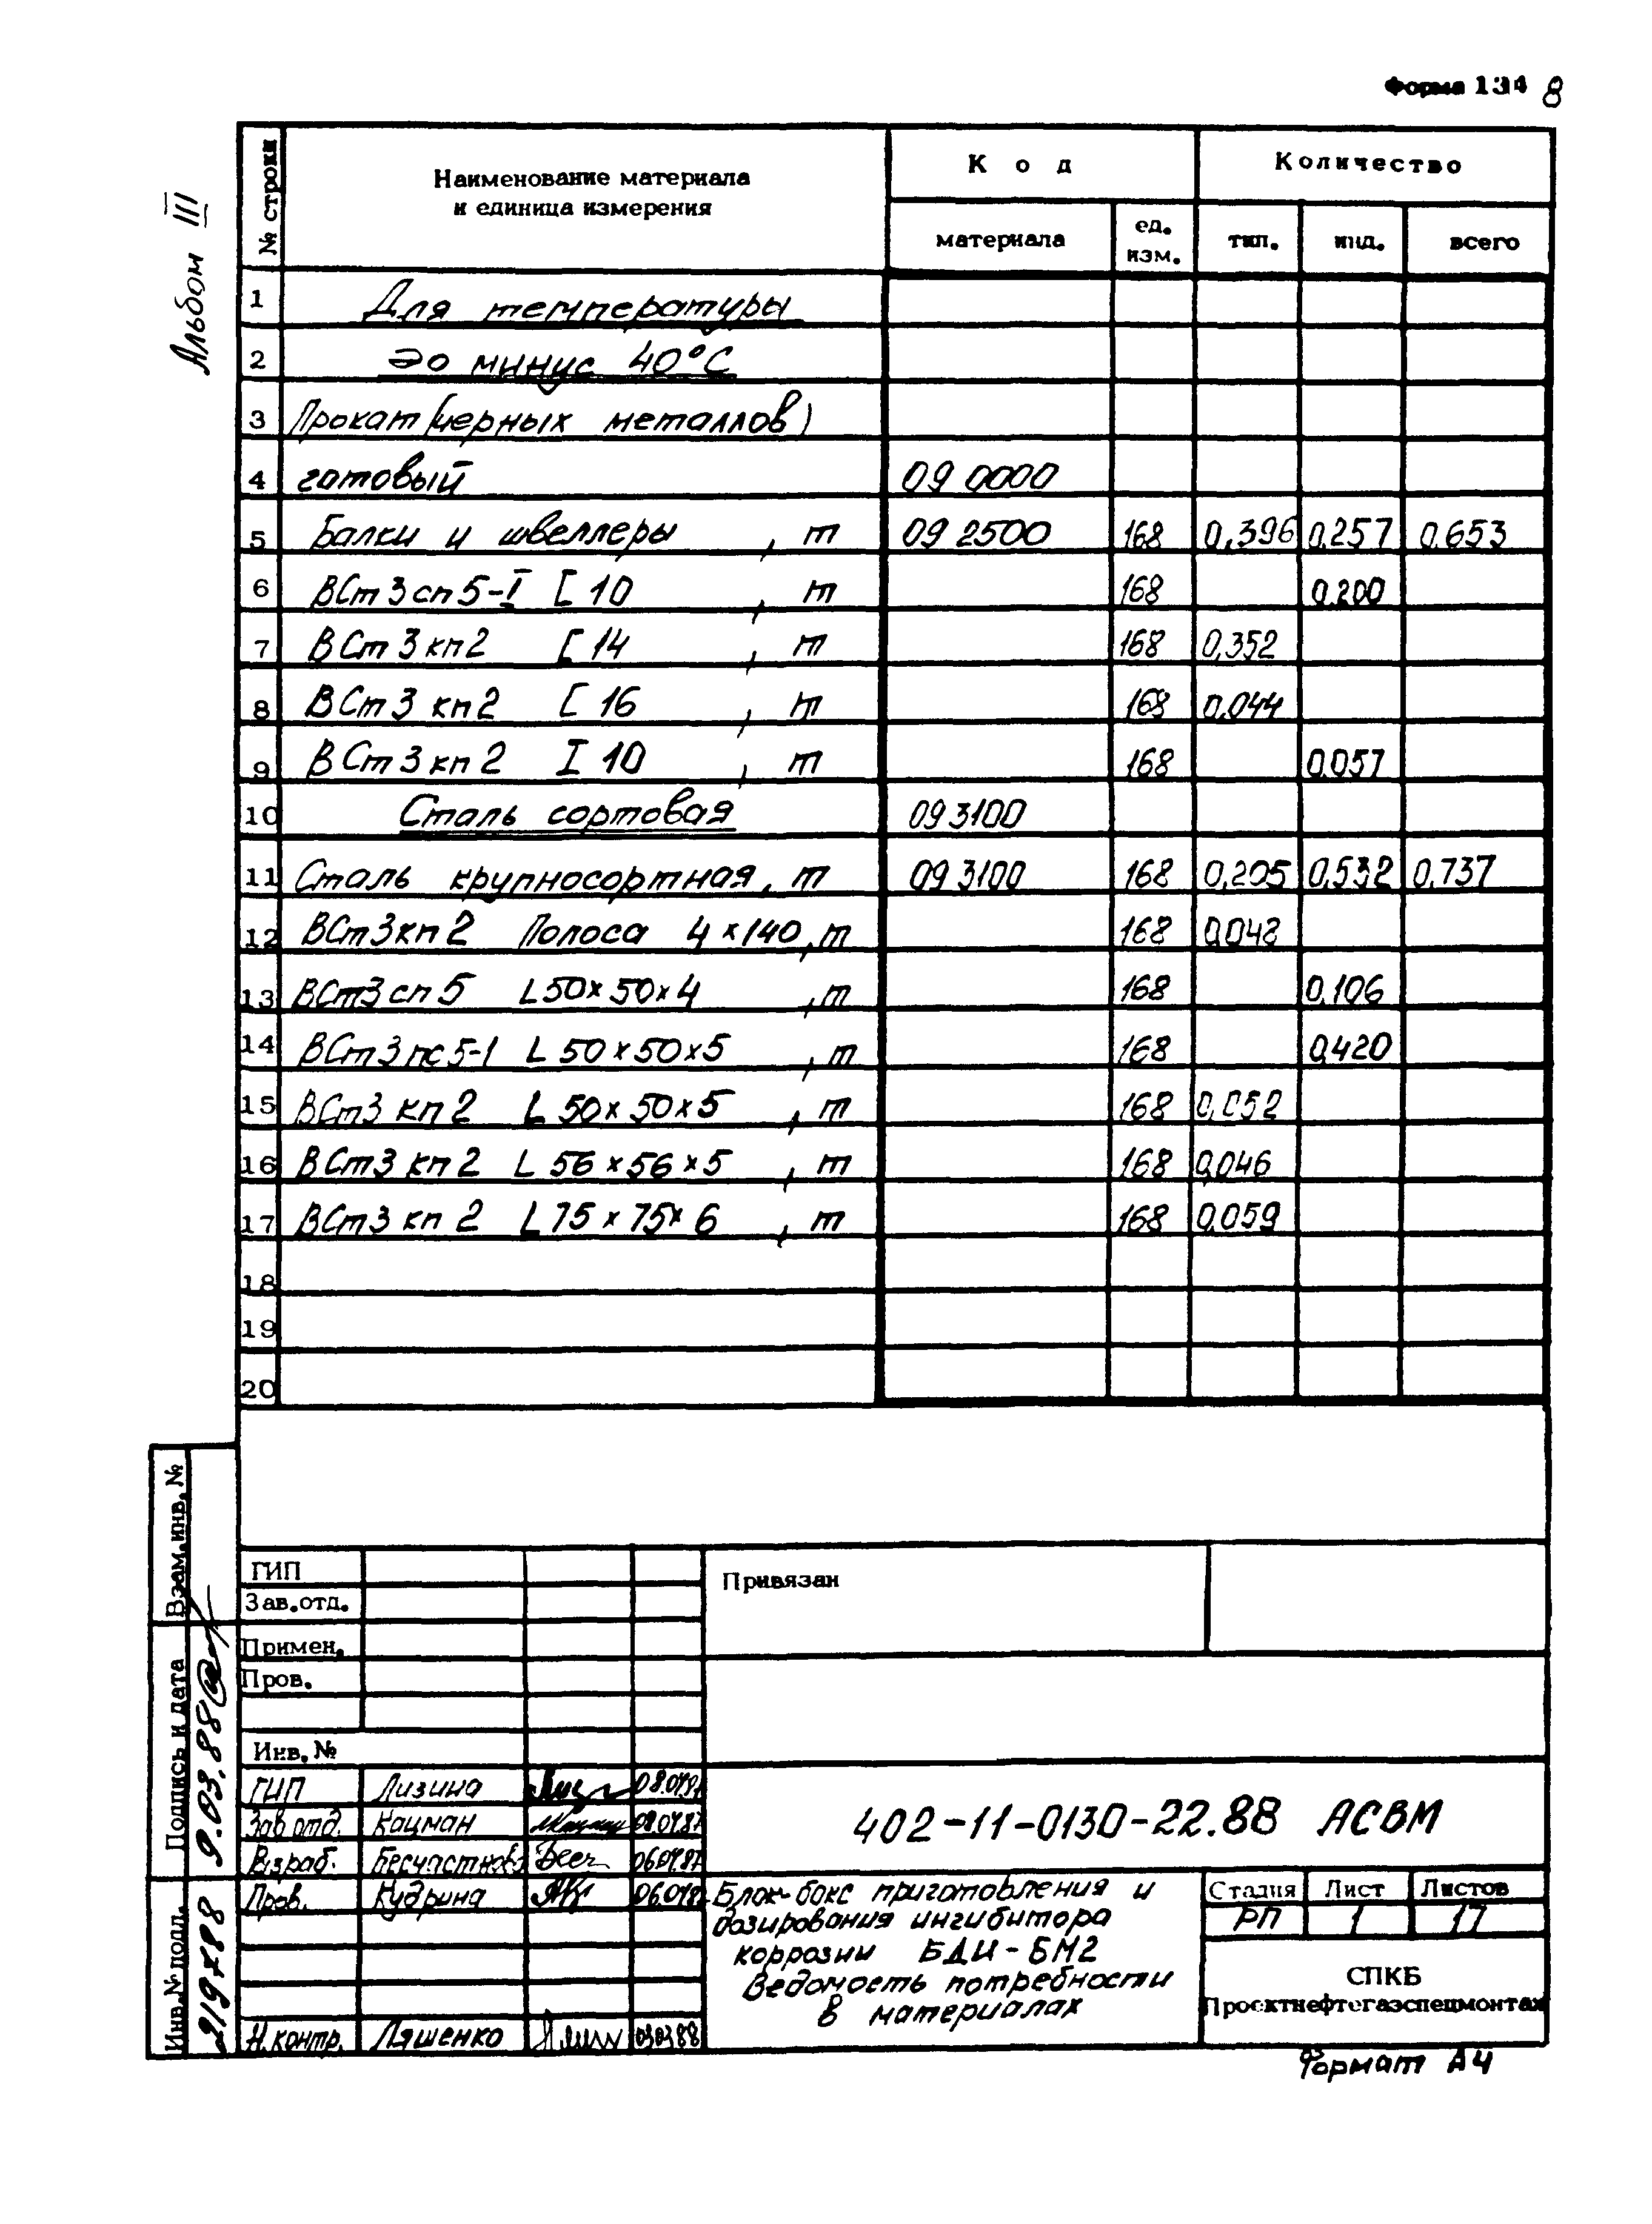 Форма 134 8
Альбом III
№ строки Наименование материала и единица измерения Код Количество
материала ед. изм. тип. инд. всего
1 Для температуры
2 до минус 40°С
3 Прокат (черных металлов)
4 готовый 09 0000
5 Балки и швеллеры, т 09 2500 168 0,396 0,257 0,653
6 ВСт3сп5-I [ 10, т 168 0,200
7 ВСт3кп2 [ 14, т 168 0,352
8 ВСт3кп2 [ 16, т 168 0,044
9 ВСт3кп2 I 10, т 168 0,057
10 Сталь сортовая 093100
11 Сталь крупносортная, т 093100 168 0,205 0,532 0,737
12 ВСт3кп2 Полоса 4×140, т 168 0,048
13 ВСт3сп5 L50×50×4, т 168 0,106
14 ВСт3пс5-1 L 50×50×5, т 168 0,420
15 ВСт3кп2 L 50×50×5, т 168 0,052
16 ВСт3кп2 L 56×56×5, т 168 0,046
17 ВСт3кп2 L 75×75×6, т 168 0,059
18
19
20
Взам.инв.№
Подпись и дата 9.03.88
Инв.№подл.
ГИП
Зав.отд.
Примен.
Пров.
Инв.№
Привязан
ГИП Лизина 08.04.87
Зав отд. Кацман 08.04.87
Разраб. Бесчастнова 06.04.87
Пров. Кудрина 06.04.87
Н.контр. Ляшенко 03.03.88
402-11-0130-22.88 АСВМ
Блок-бокс приготовления и
дозирования ингибитора
коррозии БДИ-БМ2
Ведомость потребности
в материалах
Стадия Лист Листов
РП 1 17
СПКБ
Проектнефтегазспецмонтаж
Формат А4